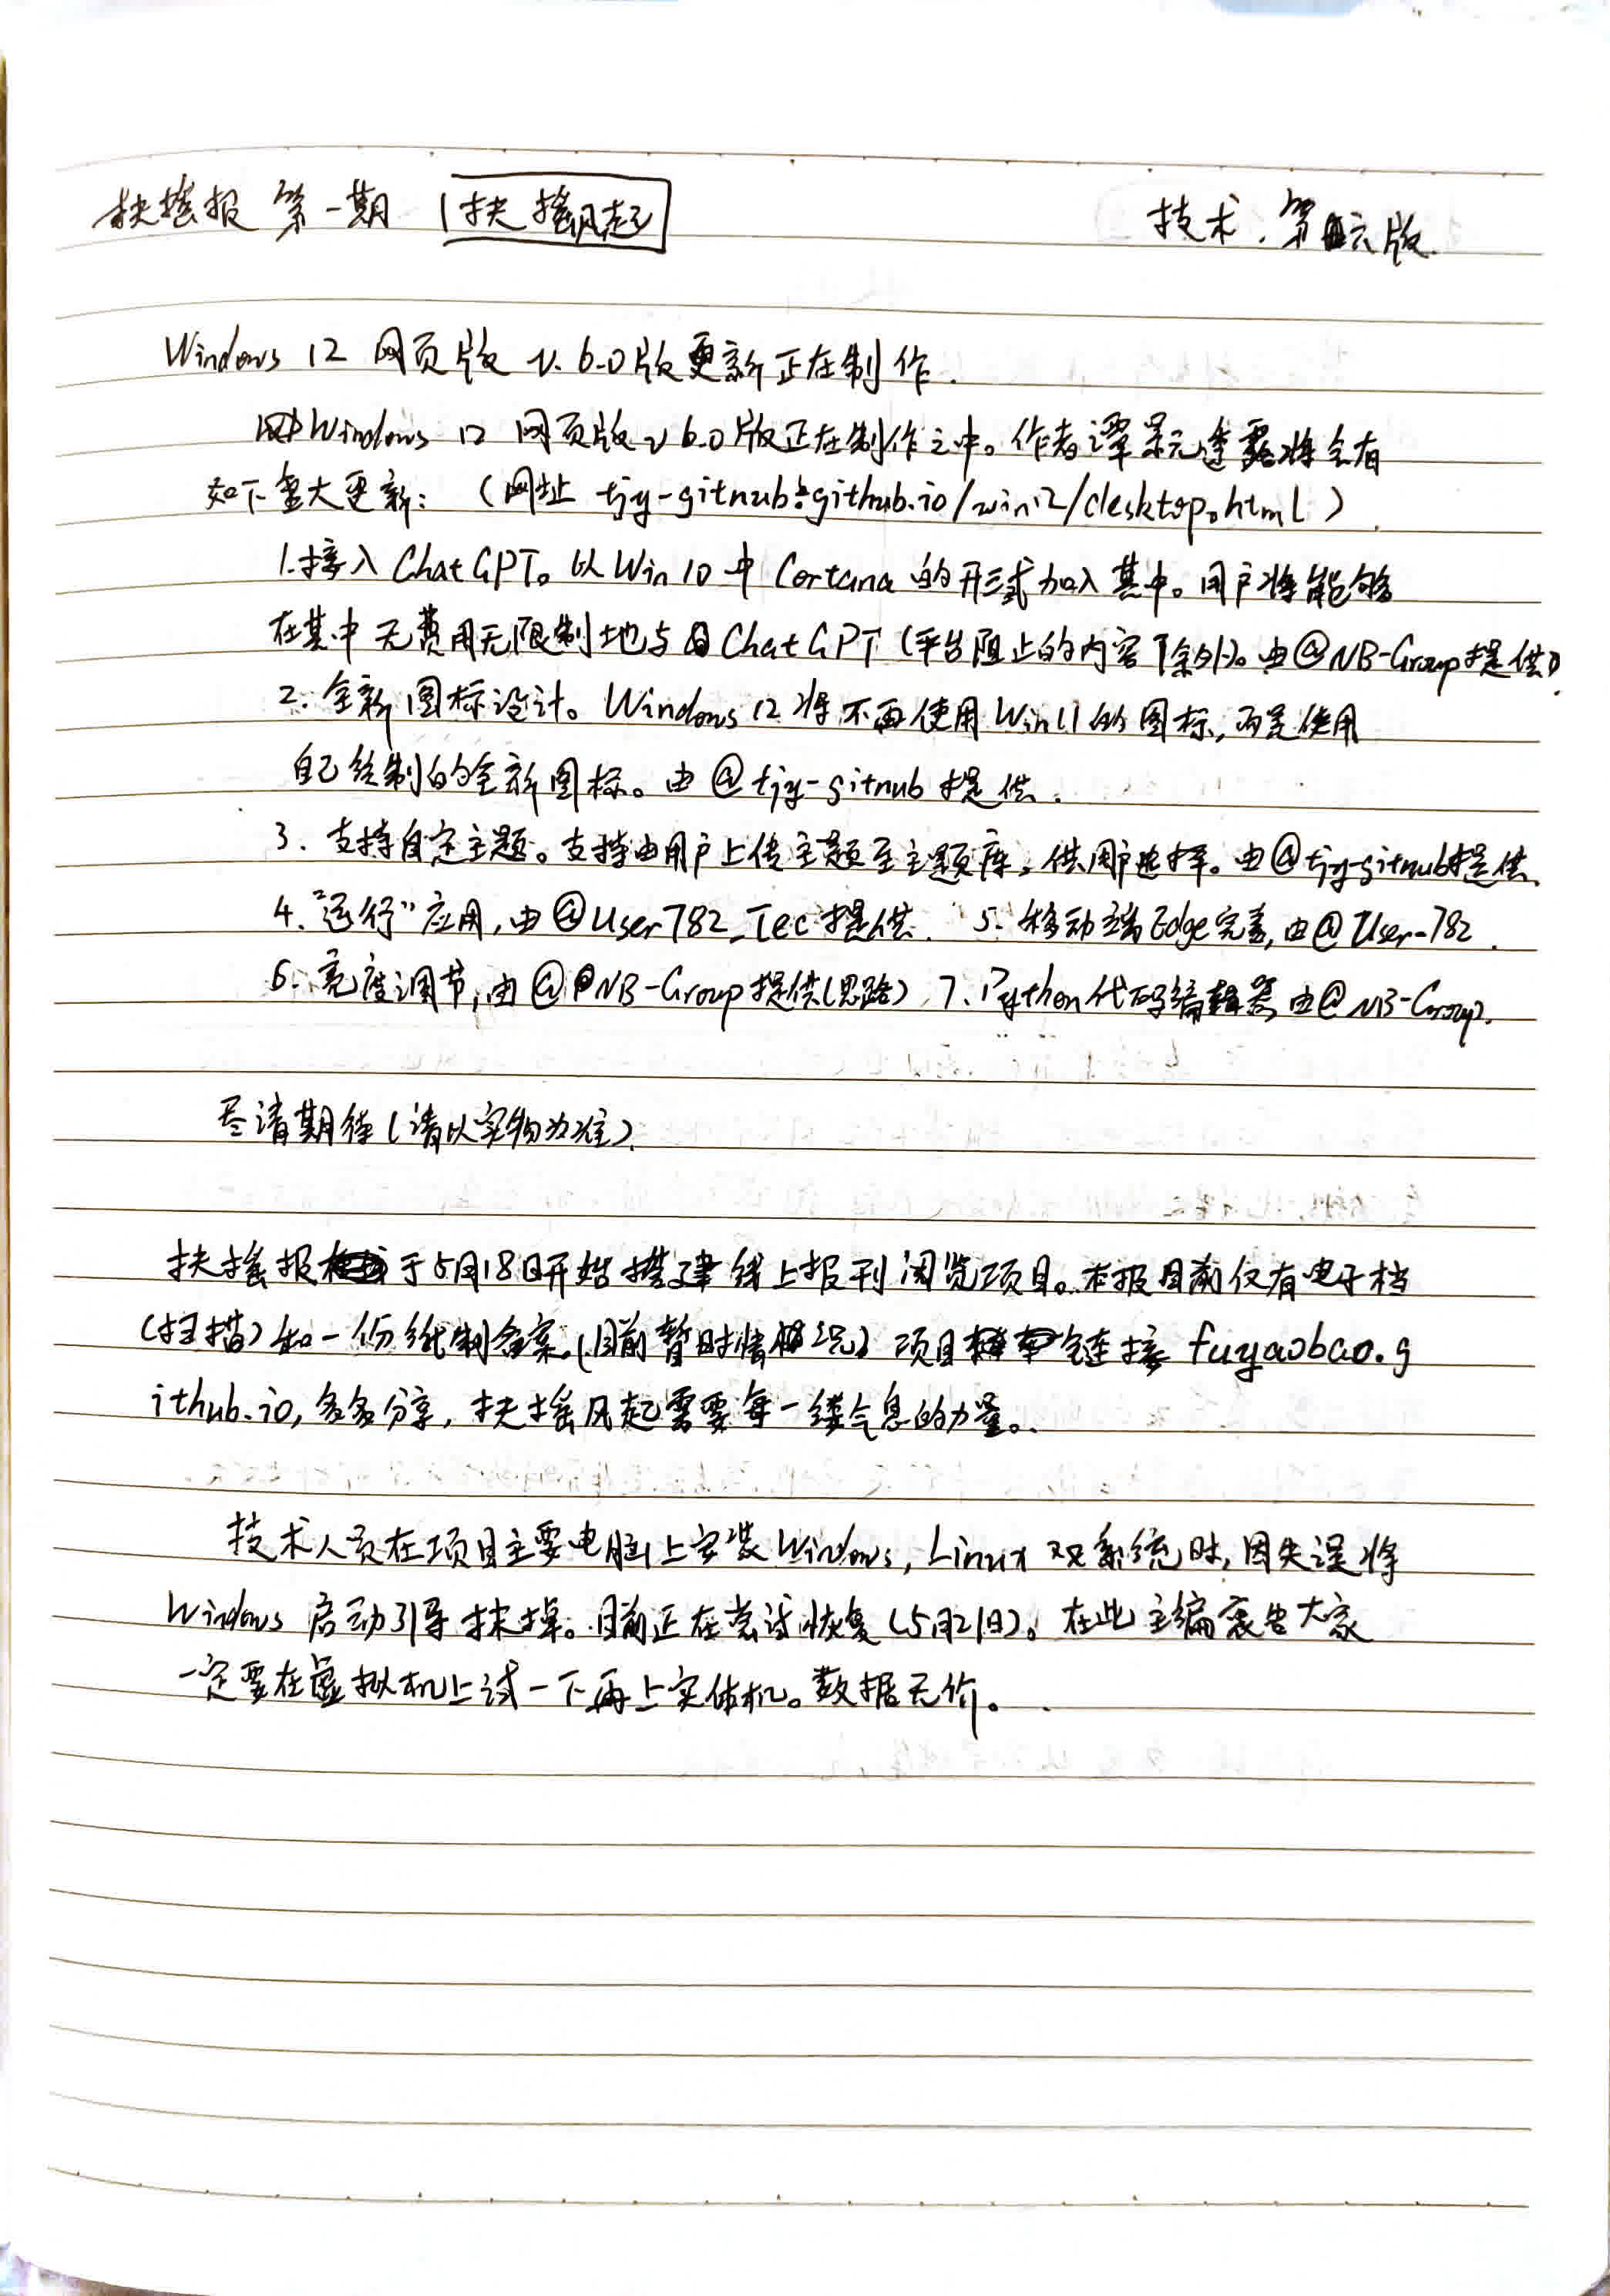 扶摇报 第一期 扶摇风起 技术.第六版.
Windows 12 网页版 v.6.0版更新正在制作.
Windows 12 网页版 v6.0版正在制作之中。作者谭景元透露将会有
如下重大更新：（网址 tjy-gitnub.github.io/win12/desktop.html）
1.接入ChatGPT。以Win10中Cortana的形式加入其中。用户将能够
在其中无费用无限制地与ChatGPT（平台阻止的内容除外）。由@NB-Group提供）.
2. 全新图标设计。Windows 12将不再使用Win11的图标，而是使用
自己绘制的全新图标。由@tjy-gitnub提供.
3. 支持自定主题。支持由用户上传主题至主题库，供用户选择。由@tjy-gitnub提供.
4. “运行”应用，由@User782_Tec提供. 5. 移动端Edge完善，由@User-782.
6. 亮度调节，由@NB-Group提供（思路） 7. Python代码编辑器 由@NB-Group.
尽请期待（请以实物为准）.
扶摇报于5月18日开始搭建线上报刊阅览项目。本报目前仅有电子档
（扫描）和一份纸制备案.（目前暂时情况）项目链接 fuyaobao.g
ithub.io，多多分享，扶摇风起需要每一缕气息的力量。
技术人员在项目主要电脑上安装Windows，Linux 双系统时，因失误将
Windows 启动引导抹掉。目前正在尝试恢复（5月21日）。在此主编哀告大家
一定要在虚拟机上试一下再上实体机。数据无价。